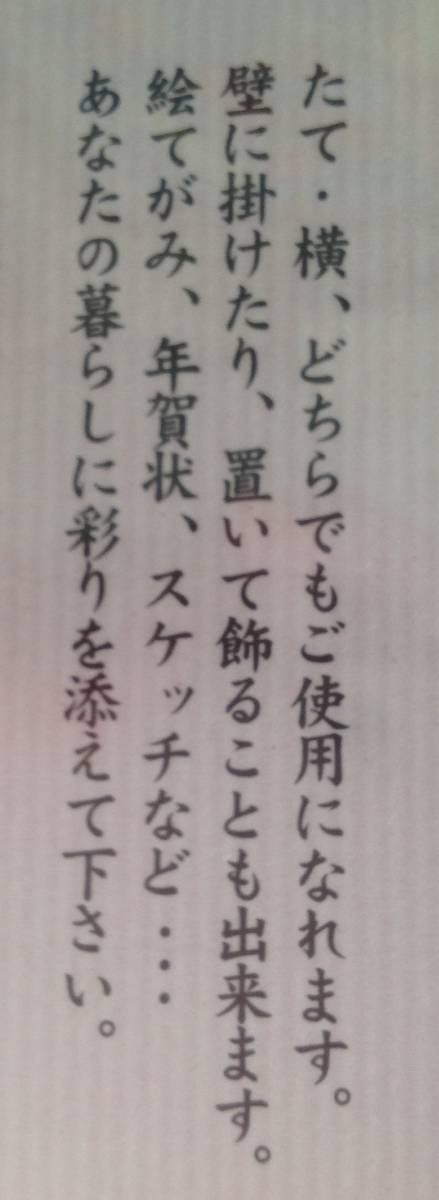 たて・横、どちらでもご使用になれます。
壁に掛けたり、置いて飾ることも出来ます。
絵てがみ、年賀状、スケッチなど・・・
あなたの暮らしに彩りを添えて下さい。